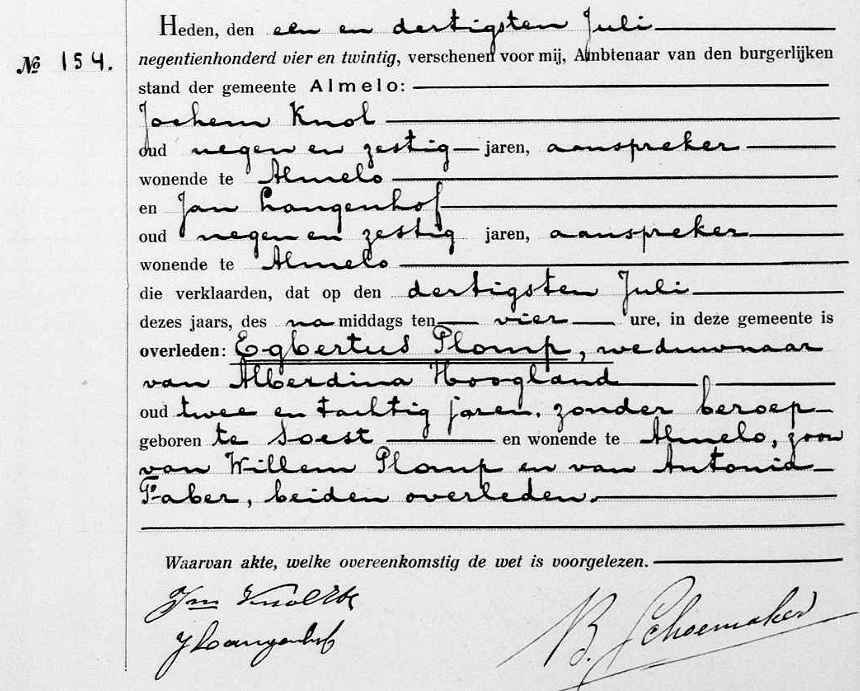 Heden, den een en dertigsten Juli
negentienhonderd vier en twintig, verschenen voor mij, Ambtenaar van den burgerlijken
№ 154.
stand der gemeente Almelo:
Jochem Knol
oud negen en zestig jaren, aanspreker
wonende te Almelo
en Jan Langenhof
oud negen en zestig jaren, aanspreker
wonende te Almelo
die verklaarden, dat op den dertigsten Juli
dezes jaars, des na middags ten vier ure, in deze gemeente is
overleden: Egbertus Plomp, weduwnaar
van Alberdina Hoogland
oud twee en tachtig jaren, zonder beroep
geboren te Soest en wonende te Almelo, zoon
van Willem Plomp en van Antonia
Faber, beiden overleden.
Waarvan akte, welke overeenkomstig de wet is voorgelezen.
Jm Knol
JLangenhof
B. Schoemaker